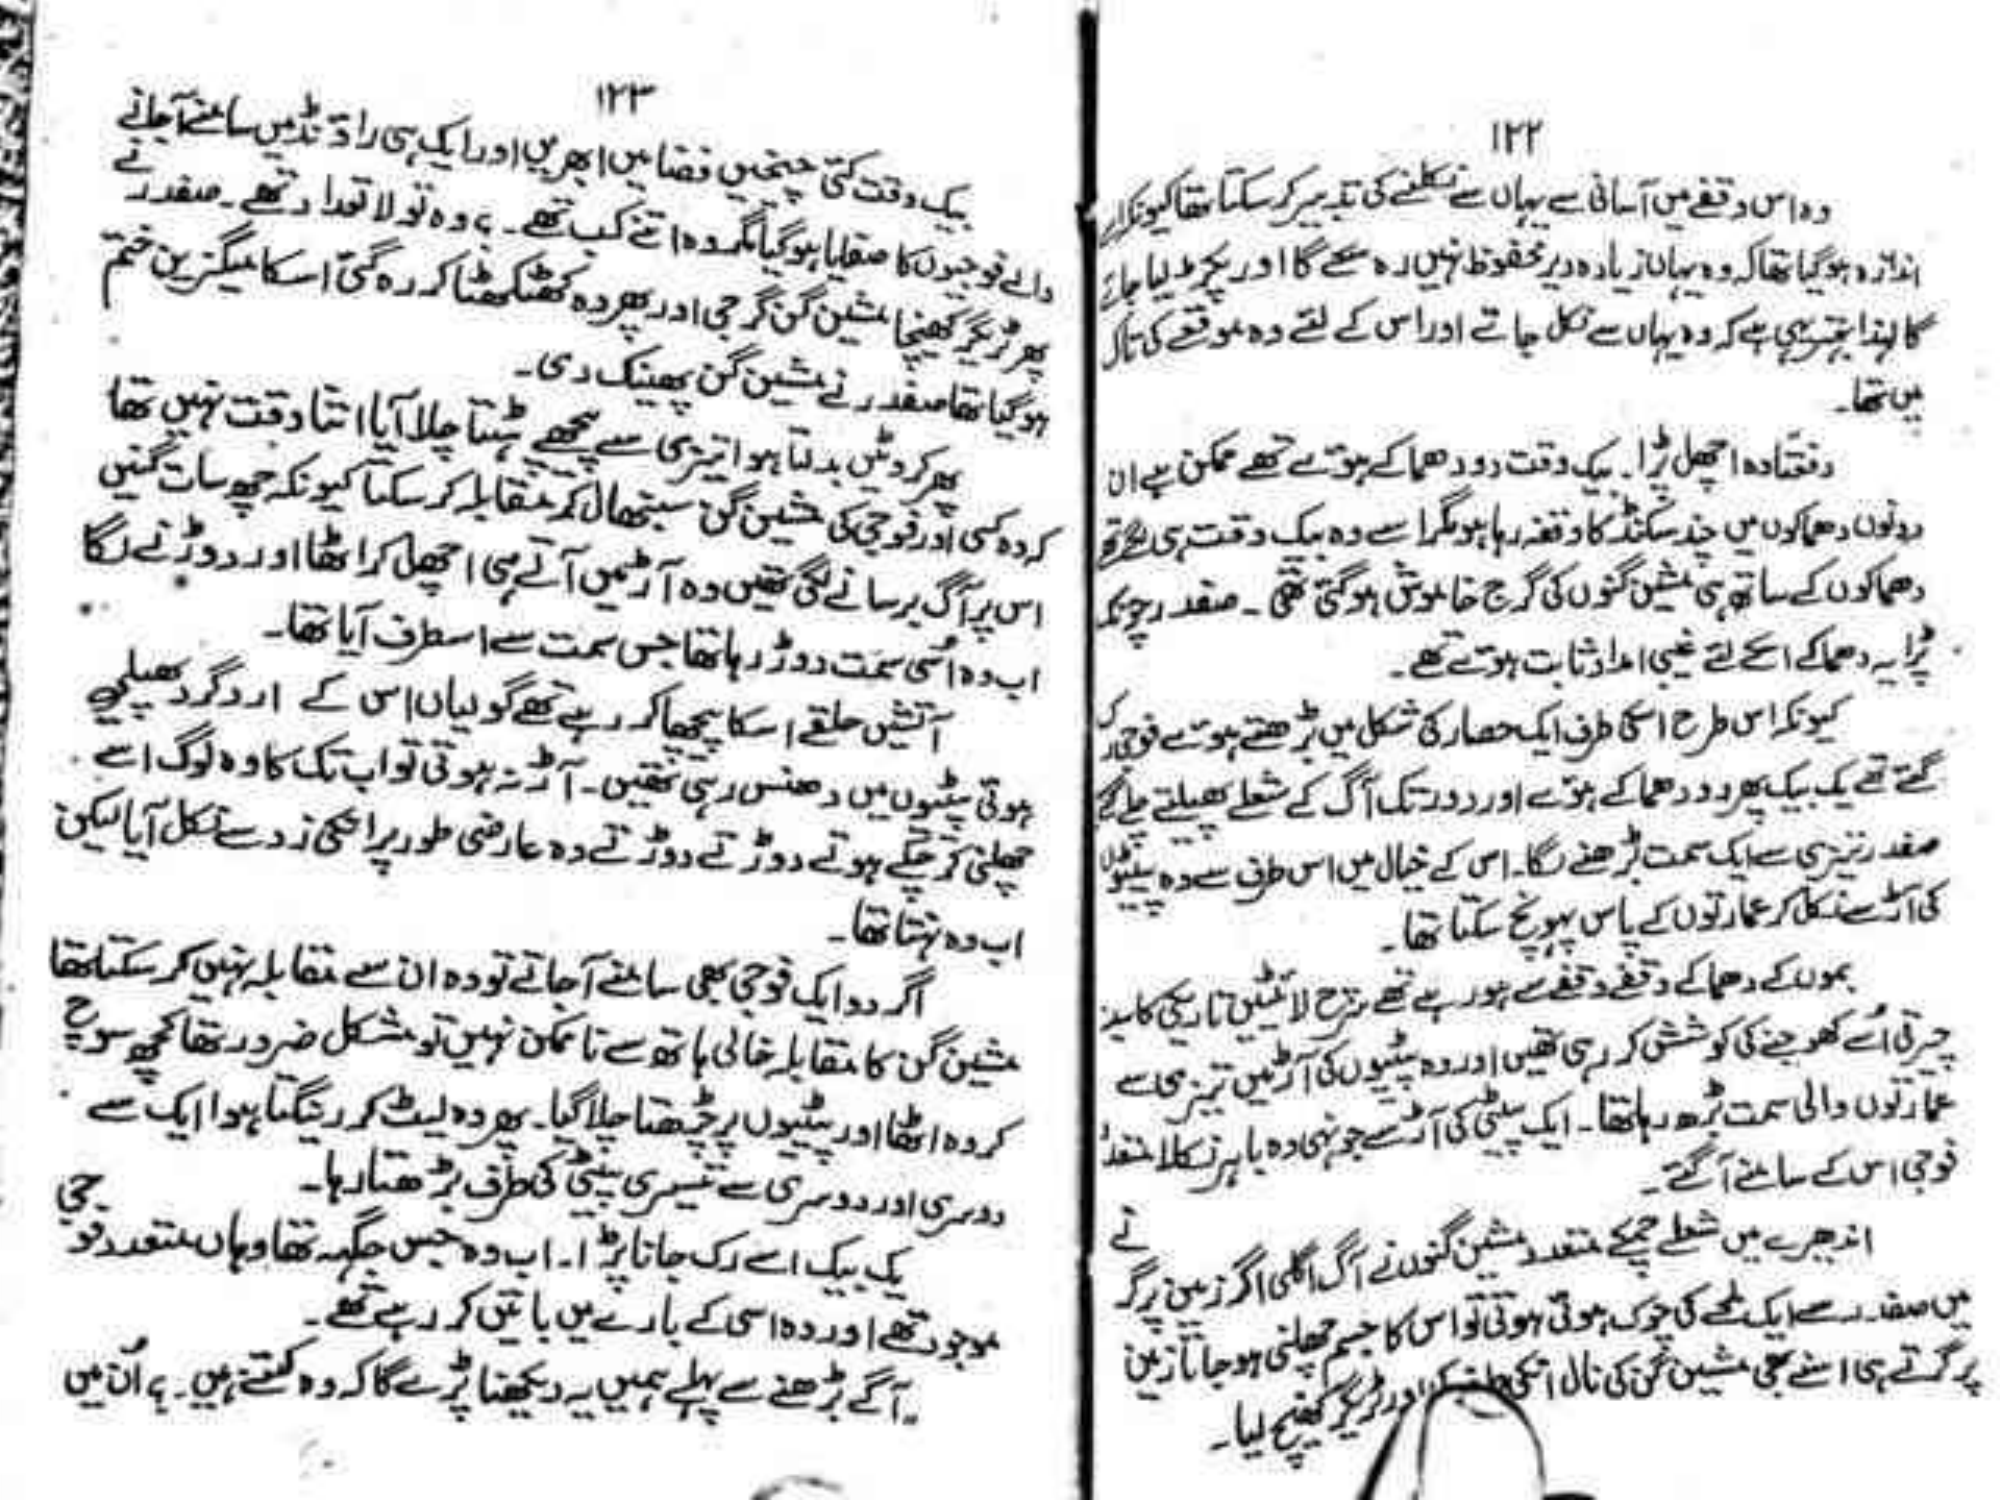 ۱۲۲
وہ اس وقفے میں آسانی سے یہاں سے نکلنے کی تدبیر کر سکتا تھا کیونکہ اسے
اندازہ ہو گیا تھا کہ وہ یہاں زیادہ دیر محفوظ نہیں رہ سکے گا اور پکڑ لیا جائے
گا لہٰذا بہتر یہی ہے کہ وہ یہاں سے نکل جائے اور اس کے لئے وہ موقعے کی تاک
میں تھا۔
دفعتاً وہ اچھل پڑا۔ بیک وقت دو دھماکے ہوئے تھے ممکن ہے ان
دونوں دھماکوں میں چند سکنڈ کا وقفہ رہا ہو مگر اسے وہ بیک وقت ہی لگے تھے
دھماکوں کے ساتھ ہی مشین گنوں کی گرج خاموش ہو گئی تھی۔ صفدر چونک
پڑا یہ دھماکے اسکے لئے غیبی امداد ثابت ہوئے تھے۔
کیونکہ اس طرح اسکی طرف ایک حصار کی شکل میں بڑھتے ہوئے فوجی رک
گئے تھے یک بیک پھر دو دھماکے ہوئے اور دور تک آگ کے شعلے پھیلتے چلے گئے
صفدر تیزی سے ایک سمت بڑھنے لگا۔ اس کے خیال میں اس طرف سے وہ پیٹیوں
کی آڑ سے نکل کر عمارتوں کے پاس پہونچ سکتا تھا۔
بموں کے دھماکے وقفے وقفے سے ہو رہے تھے سرچ لائٹیں تاریکی کا سینہ
چیرتی اُسے کھوجنے کی کوشش کر رہی تھیں اور وہ پیٹیوں کی آڑ میں تیزی سے
عمارتوں والی سمت بڑھ رہا تھا۔ ایک پیٹی کی آڑ سے جونہی وہ باہر نکلا متعدد
فوجی اس کے سامنے آ گئے۔
اندھیرے میں شعلے چمکے متعدد مشین گنوں نے آگ اگلی اگر زمین پر گرنے
میں صفدر سے ایک لمحے کی چوک ہوئی ہوتی تو اس کا جسم چھلنی ہو جاتا زمین
پر گرتے ہی اسنے بھی مشین گن کی نال انکی طرف اور ٹریگر کھینچ لیا۔
۱۲۳
بیک وقت کئی چیخیں فضا میں ابھریں اور ایک ہی راؤنڈ میں سامنے آ جانے
والے فوجیوں کا صفایا ہو گیا مگر وہ اتنے کب تھے۔ ؟ وہ تو لا تعداد تھے۔ صفدر نے
پھر ٹریگر کھینچا مشین گن گرجی اور پھر وہ کھٹکھٹا کر رہ گئی اسکا میگزین ختم
ہو گیا تھا صفدر نے مشین گن پھینک دی۔
پھر کروٹیں بدلتا ہوا تیزی سے پیچھے ہٹتا چلا آیا اتنا وقت نہیں تھا
کہ وہ کسی اور فوجی کی مشین گن سنبھال کر مقابلہ کر سکتا کیونکہ چھ سات گنیں
اس پر آگ برسانے لگی تھیں وہ آڑ میں آتے ہی اچھل کر اٹھا اور دوڑنے لگا
اب وہ اُسی سمت دوڑ رہا تھا جس سمت سے اسطرف آیا تھا۔
آتشیں حلقے اسکا پیچھا کر رہے تھے گولیاں اس کے ارد گرد پھیلی
ہوئی پیٹیوں میں دھنس رہی تھیں۔ آڑ نہ ہوتی تو اب تک کا وہ لوگ اسے
چھلنی کر چکے ہوتے دوڑتے دوڑتے وہ عارضی طور پر انکی زد سے نکل آیا لیکن
اب وہ نہتا تھا۔
اگر دو ایک فوجی بھی سامنے آ جاتے تو وہ ان سے مقابلہ نہیں کر سکتا تھا
مشین گن کا مقابلہ خالی ہاتھ سے ناممکن نہیں تو مشکل ضرور تھا کچھ سوچ
کر وہ اٹھا اور پیٹیوں پر چڑھتا چلا گیا۔ پھر وہ لیٹ کر رینگتا ہوا ایک سے
دوسری اور دوسری سے تیسری پیٹی کی طرف بڑھتا رہا۔
یک بیک اسے رک جانا پڑا۔ اب وہ جس جگہ تھا وہاں متعدد فوجی
موجود تھے اور وہ اسی کے بارے میں باتیں کر رہے تھے۔
"آگے بڑھنے سے پہلے ہمیں یہ دیکھنا پڑے گا کہ وہ کتنے ہیں۔ ؟ اُن میں